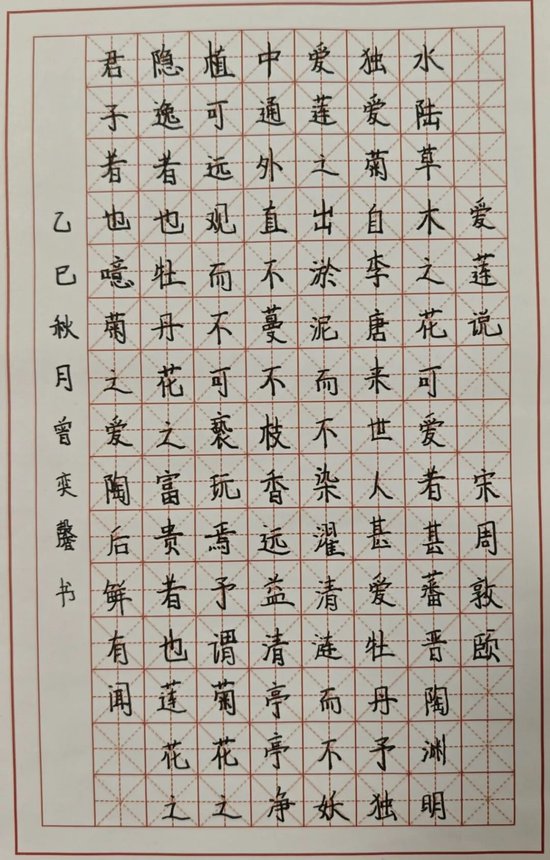 爱莲说 宋周敦颐
水陆草木之花可爱者甚蕃晋陶渊明
独爱菊自李唐来世人甚爱牡丹予独
爱莲之出淤泥而不染濯清涟而不妖
中通外直不蔓不枝香远益清亭亭净
植可远观而不可亵玩焉予谓菊花之
隐逸者也牡丹花之富贵者也莲花之
君子者也噫菊之爱陶后鲜有闻
乙巳秋月曾奕馨书